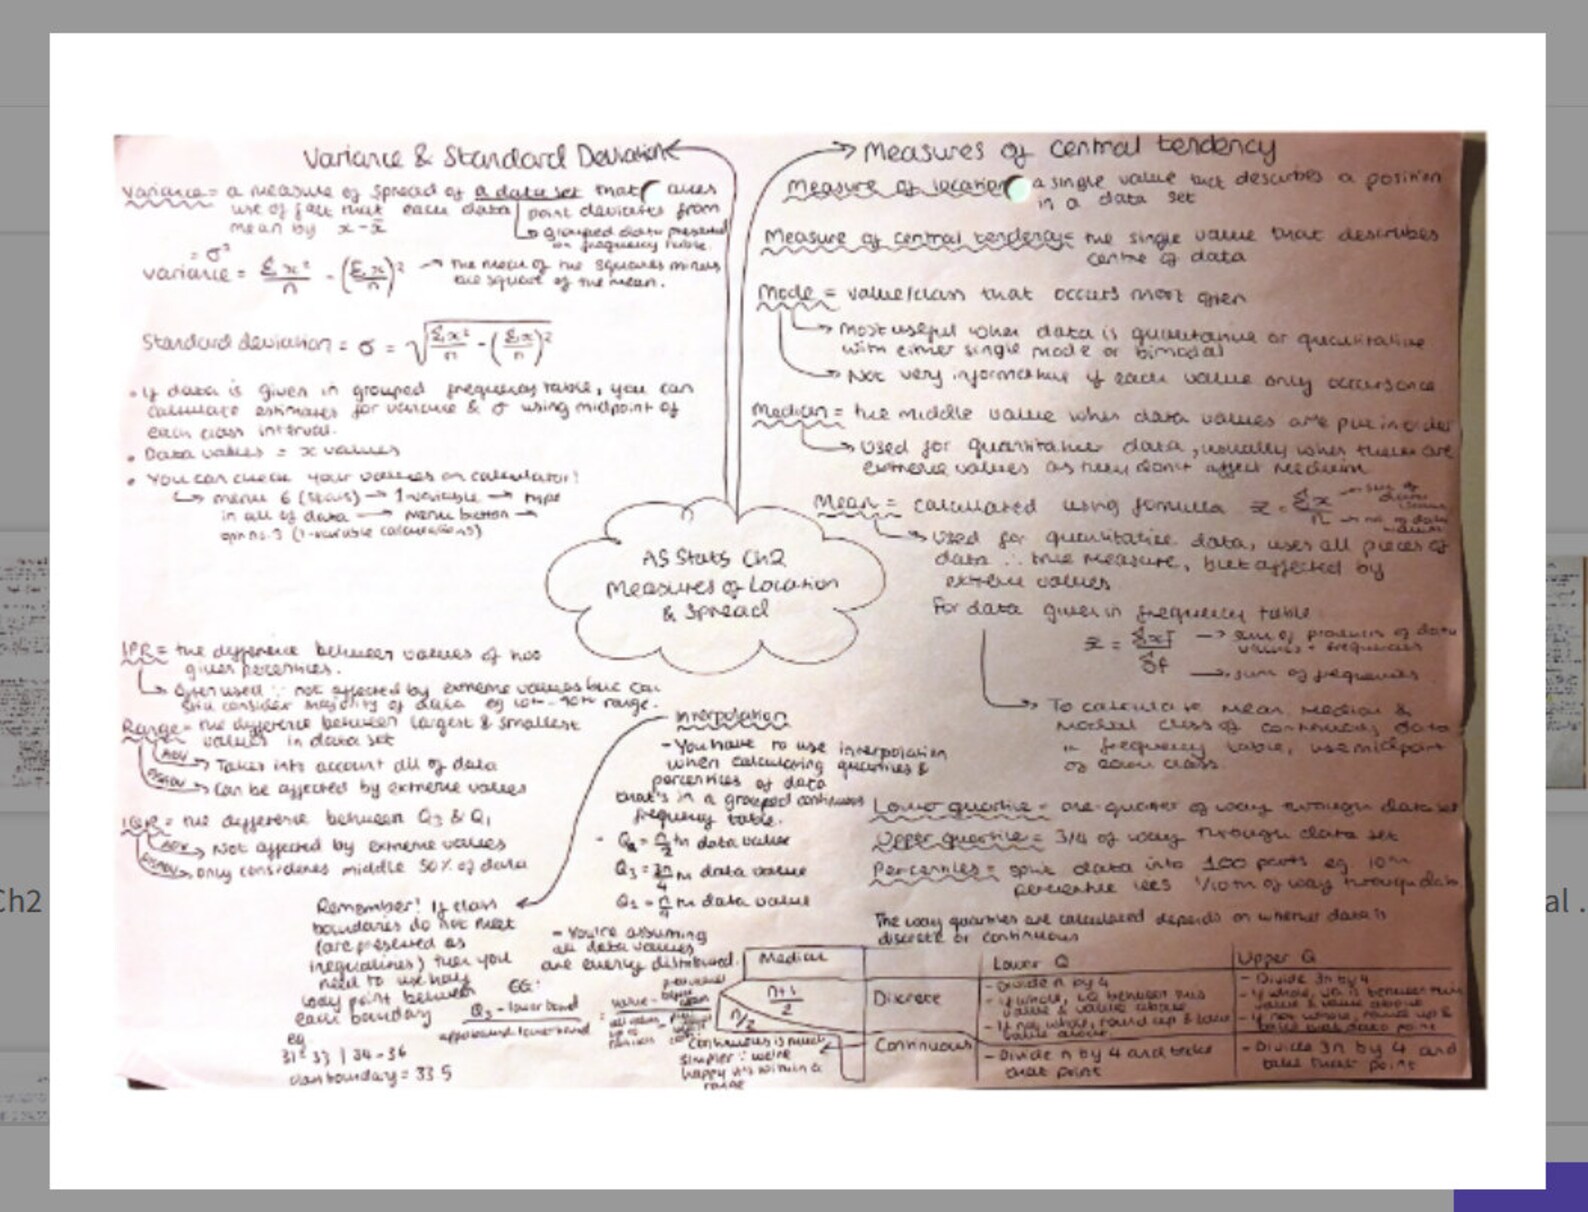 Variance & Standard Deviation
Variance = a measure of spread of a data set that
use of fact that each data point deviates from
mean by x - x̄
grouped data presented
in frequency table.
= σ²
variance = Σx²/n - (Σx/n)²
the mean of the squares minus
the square of the mean.
Standard deviation = σ = √(Σx²/n - (Σx/n)²)
• If data is given in grouped frequency table, you can
calculate estimates for variance & σ using midpoint of
each class interval.
• Data values = x values
• You can check your values on calculator!
menu 6 (stats) → 1 variable → type
in all of data → menu button →
option 3 (1-variable calculations)
AS Stats Ch2
Measures of Location
& Spread
IPR = the difference between values of two
given percentiles.
Often used ∵ not affected by extreme values but can
still consider majority of data eg 10th - 90th range.
Range = the difference between largest & smallest
values in data set
ADV Takes into account all of data
DISADV Can be affected by extreme values
IQR = the difference between Q3 & Q1
ADV Not affected by extreme values
DISADV only considers middle 50% of data
Interpolation
- You have to use interpolation
when calculating quartiles &
percentiles of data
that's in a grouped continuous
frequency table.
- Q2 = n/2 th data value
Q3 = 3n/4 th data value
Q1 = n/4 th data value
- You're assuming
all data values
are evenly distributed.
Remember! If class
boundaries do not meet
(are presented as
inequalities) then you
need to use half
way point between
each boundary
eg
31 - 33 | 34 - 36
class boundary = 33.5
EG:
Q3 - lower bound
upper bound - lower bound
Measures of central tendency
Measure of location = a single value that describes a position
in a data set
Measure of central tendency = the single value that describes
centre of data
Mode = value/class that occurs most often
Most useful when data is qualitative or quantitative
with either single mode or bimodal
Not very informative if each value only occurs once
Median = the middle value when data values are put in order
Used for quantitative data, usually when there are
extreme values as they don't affect median
Mean = calculated using formula x̄ = Σx/n
sum of data values
no of data values
Used for quantitative data, uses all pieces of
data ∴ true measure, but affected by
extreme values
For data given in frequency table
x̄ = Σxf/Σf
sum of products of data
values & frequencies
sum of frequencies
To calculate mean, median &
modal class of continuous data
in frequency table, use midpoint
of each class.
Lower quartile = one-quarter of way through data set
Upper quartile = 3/4 of way through data set
Percentiles = split data into 100 parts eg. 10th
percentile lies 1/10th of way through data
The way quartiles are calculated depends on whether data is
discrete or continuous
Median
Lower Q
Upper Q
n+1/2
n/2
Discrete
- Divide n by 4
- if whole, LQ between this
value & value above
- If not whole, round up & take
value above
- Divide 3n by 4
- if whole, UQ is between this
value & value above
- if not whole, round up &
take that data point
Continuous
- Divide n by 4 and take
that point
- Divide 3n by 4 and
take that point
Continuous is much
simpler ∵ we're
happy it's within a
range
Ch2
al .